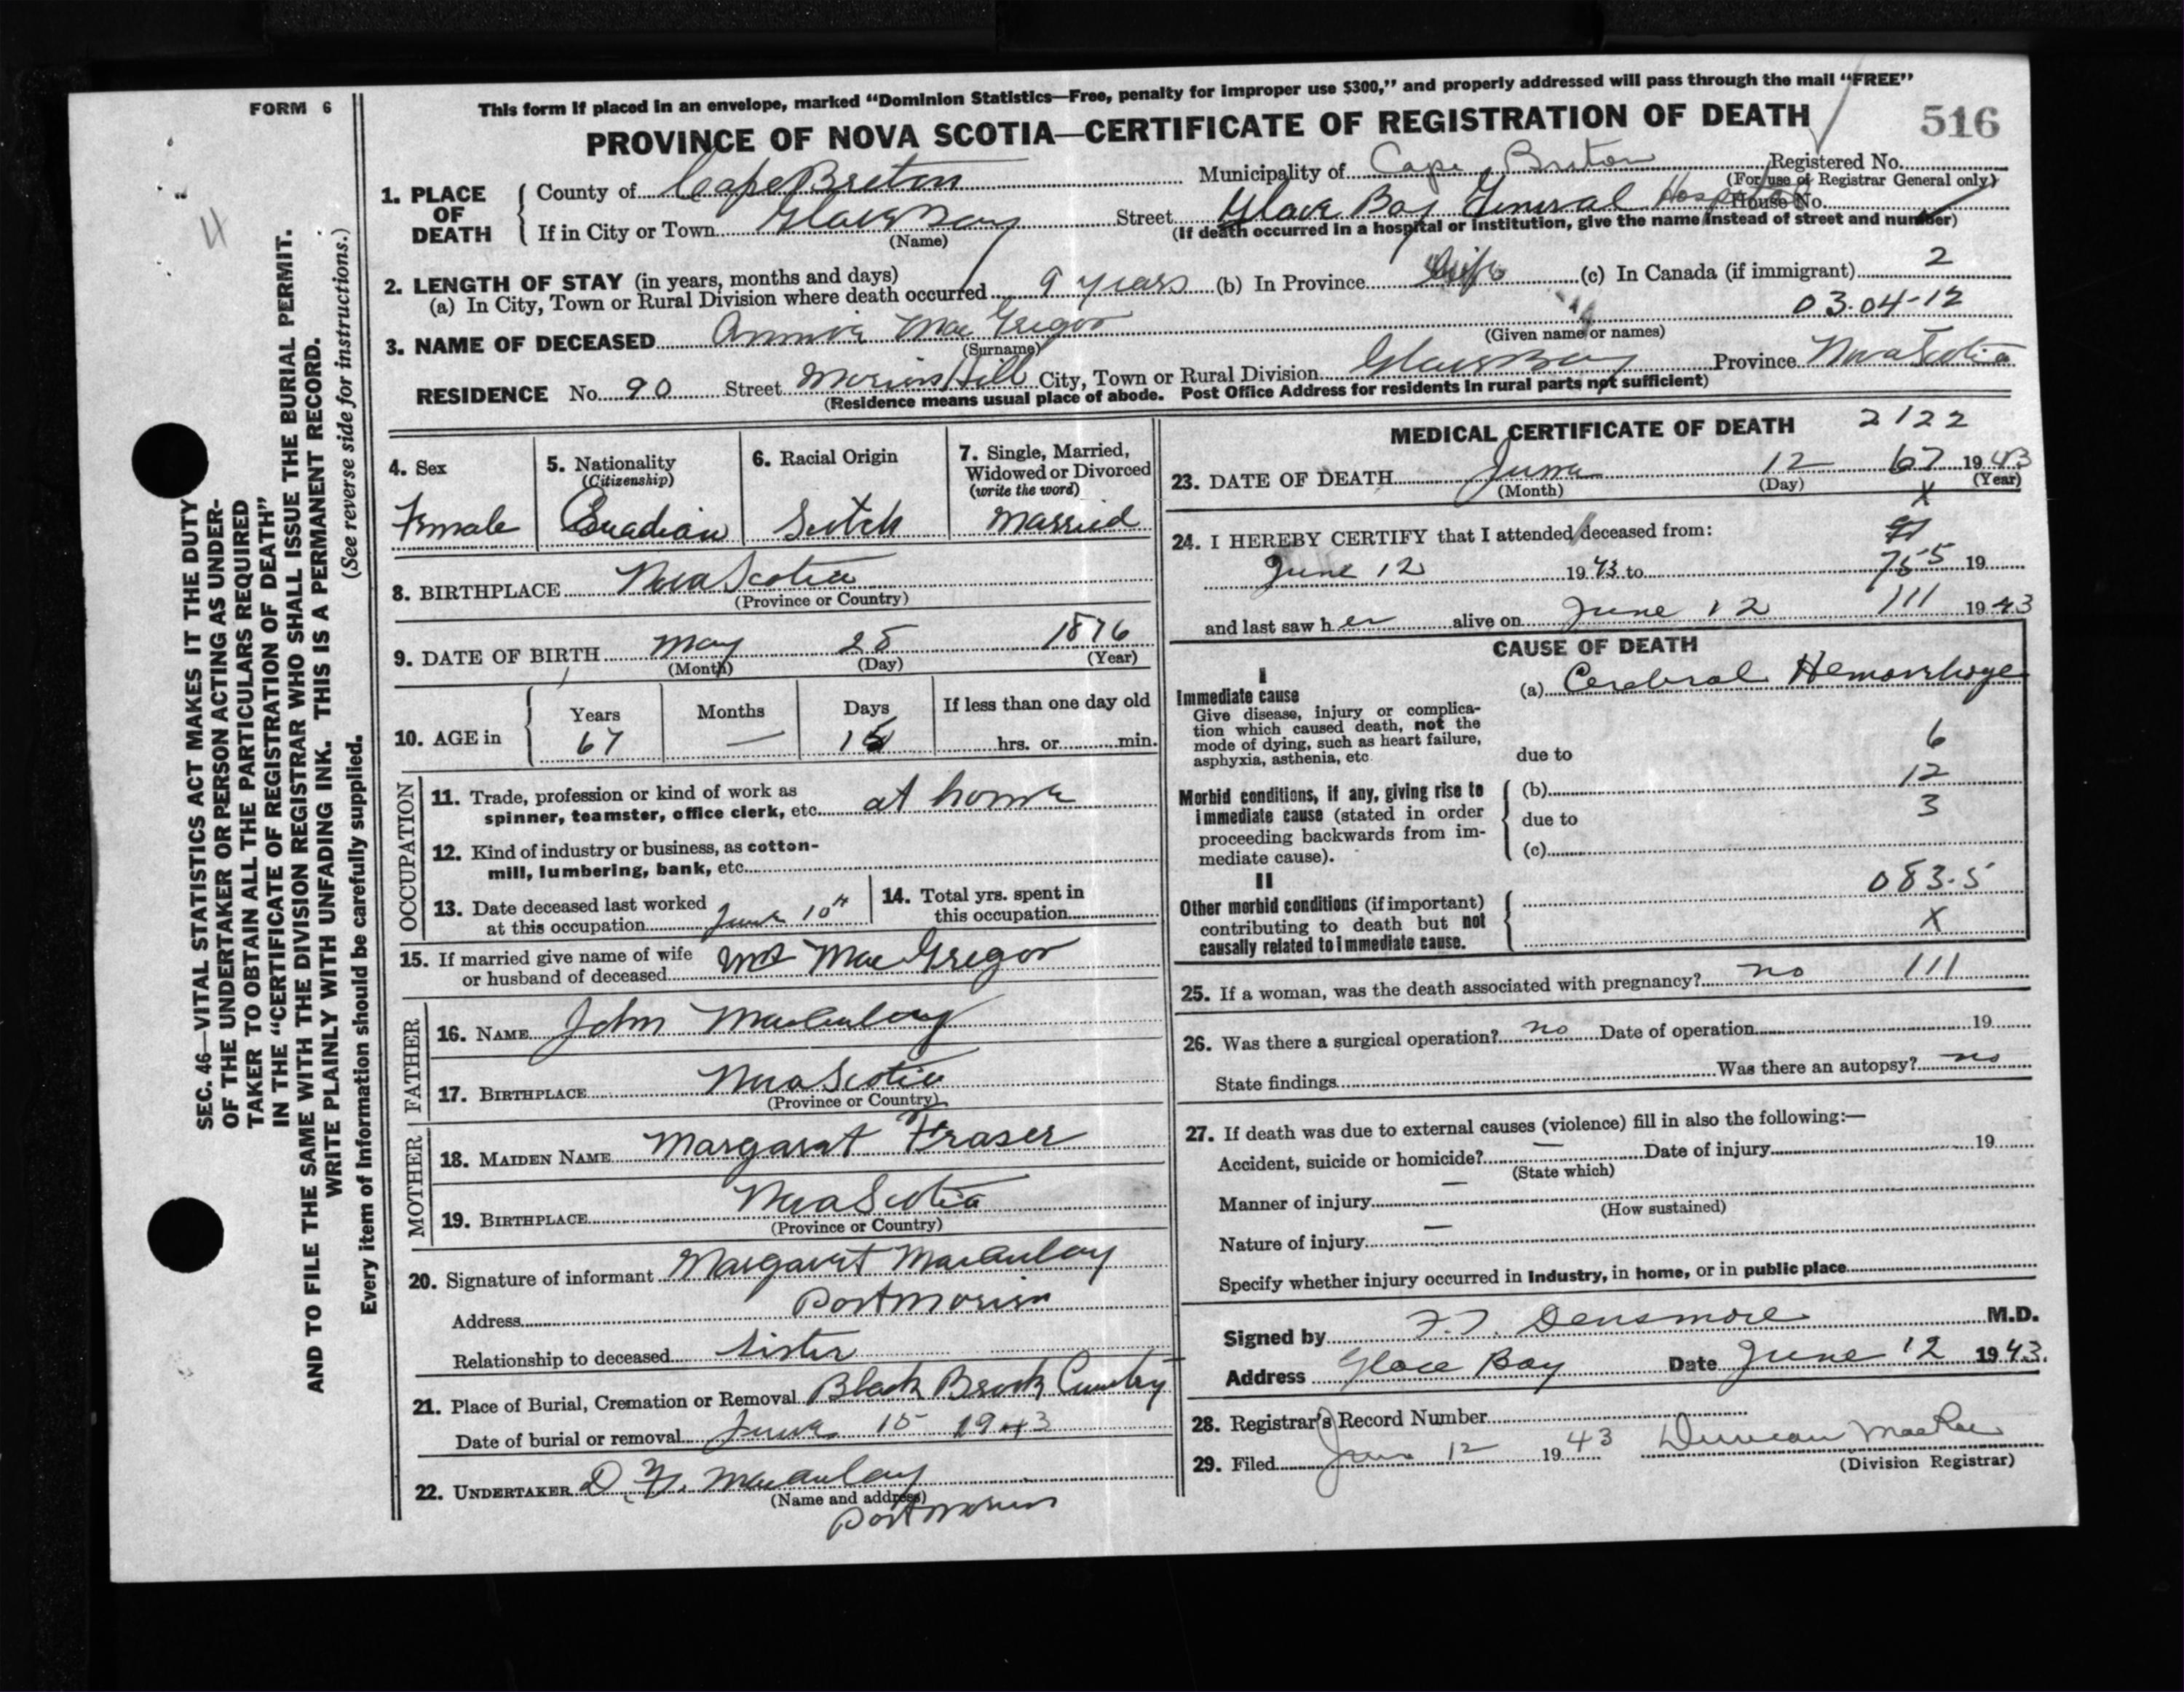 FORM 6
This form if placed in an envelope, marked “Dominion Statistics—Free, penalty for improper use $300,” and properly addressed will pass through the mail “FREE”
PROVINCE OF NOVA SCOTIA—CERTIFICATE OF REGISTRATION OF DEATH
516
4
SEC. 46—VITAL STATISTICS ACT MAKES IT THE DUTY
OF THE UNDERTAKER OR PERSON ACTING AS UNDER-
TAKER TO OBTAIN ALL THE PARTICULARS REQUIRED
IN THE “CERTIFICATE OF REGISTRATION OF DEATH”
AND TO FILE THE SAME WITH THE DIVISION REGISTRAR WHO SHALL ISSUE THE BURIAL PERMIT.
WRITE PLAINLY WITH UNFADING INK. THIS IS A PERMANENT RECORD.
(See reverse side for instructions.)
Every item of Information should be carefully supplied.
1. PLACE OF DEATH
County of Cape Breton Municipality of Cape Breton Registered No.
(For use of Registrar General only)
If in City or Town Glace Bay Street Glace Bay General Hospital House No.
(Name) (If death occurred in a hospital or institution, give the name instead of street and number)
2. LENGTH OF STAY (in years, months and days)
(a) In City, Town or Rural Division where death occurred 9 years (b) In Province Life (c) In Canada (if immigrant) 2
03.04-12
3. NAME OF DECEASED Annie MacGregor
(Surname) (Given name or names)
RESIDENCE No. 90 Street Morien Hill City, Town or Rural Division Glace Bay Province Nova Scotia
(Residence means usual place of abode. Post Office Address for residents in rural parts not sufficient)
4. Sex
Female
5. Nationality
(Citizenship)
Canadian
6. Racial Origin
Scotch
7. Single, Married,
Widowed or Divorced
(write the word)
Married
8. BIRTHPLACE Nova Scotia
(Province or Country)
9. DATE OF BIRTH May 28 1876
(Month) (Day) (Year)
10. AGE in
Years Months Days If less than one day old
67 — 15 hrs. or min.
OCCUPATION
11. Trade, profession or kind of work as
spinner, teamster, office clerk, etc. at home
12. Kind of industry or business, as cotton-
mill, lumbering, bank, etc.
13. Date deceased last worked
at this occupation June 10th
14. Total yrs. spent in
this occupation
15. If married give name of wife
or husband of deceased MacGregor
FATHER
16. NAME John MacAulay
17. BIRTHPLACE Nova Scotia
(Province or Country)
MOTHER
18. MAIDEN NAME Margaret Fraser
19. BIRTHPLACE Nova Scotia
(Province or Country)
20. Signature of informant Margaret MacAulay
Address Port Morien
Relationship to deceased Sister
21. Place of Burial, Cremation or Removal Black Brook Cemetery
Date of burial or removal June 15 1943
22. UNDERTAKER MacAulay
(Name and address)
Port Morien
MEDICAL CERTIFICATE OF DEATH 2122
23. DATE OF DEATH June 12 67 1943
(Month) (Day) (Year)
X
24. I HEREBY CERTIFY that I attended deceased from:
June 12 1943 to 755 19
and last saw her alive on June 12 111 1943
CAUSE OF DEATH
I
Immediate cause
Give disease, injury or complica-
tion which caused death, not the
mode of dying, such as heart failure,
asphyxia, asthenia, etc.
(a) Cerebral Hemorrhage
6
due to
12
Morbid conditions, if any, giving rise to
immediate cause (stated in order
proceeding backwards from im-
mediate cause).
(b)
3
due to
(c)
II
Other morbid conditions (if important)
contributing to death but not
causally related to immediate cause.
083.5
X
25. If a woman, was the death associated with pregnancy? no 111
26. Was there a surgical operation? no Date of operation 19
State findings Was there an autopsy? no
27. If death was due to external causes (violence) fill in also the following:—
Accident, suicide or homicide? — Date of injury 19
(State which)
Manner of injury —
(How sustained)
Nature of injury —
Specify whether injury occurred in industry, in home, or in public place
Signed by F.T. Densmore M.D.
Address Glace Bay Date June 12 1943.
28. Registrar's Record Number
29. Filed June 12 1943 Duncan MacRae
(Division Registrar)